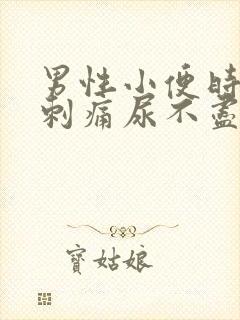 男性小便時
刺痛尿不盡
寶姑娘